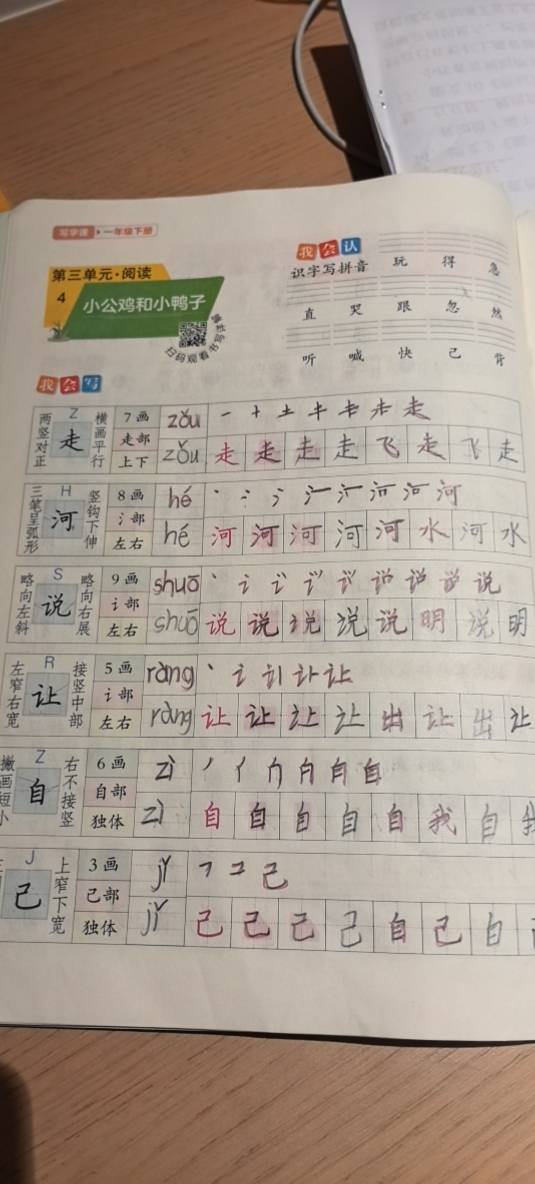 写字课 一年级下册
第三单元·阅读
4 小公鸡和小鸭子
扫码观看书写视频
我会认
识字写拼音 玩 得 急
直 哭 跟 忽 然
听 喊 快 己 背
我会写
两竖对正 Z 走 横画平行 7画 走部 上下 zǒu 一 十 土 キ 走
zǒu 走 走 走 走 飞 走 飞 走
三笔呈弧形 H 河 竖钩下伸 8画 氵部 左右 hé 丶 氵 河
hé 河 河 河 河 河 水 河 水
略向左斜 S 说 略向右展 9画 讠部 左右 shuō 丶 讠 说
shuō 说 说 说 说 说 明 说 明
左窄右宽 R 让 接竖中部 5画 讠部 左右 ràng 丶 讠 让
ràng 让 让 让 让 出 让 出 让
撇画短小 Z 自 右不接竖 6画 自部 独体 zì 丿 亻 自
zì 自 自 自 自 自 我 自 我
J 己 上窄下宽 3画 己部 独体 jǐ 𠃍 コ 己
jǐ 己 己 己 己 自 己 自